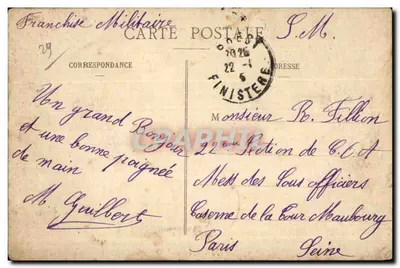 Franchise Militaire
S.M.
CARTE POSTALE
29
BREST
19 25
22 - 1
FINISTERE
CORRESPONDANCE
ADRESSE
Un grand Bonjour
et une bonne poignée
de main
M. Guilbert
Monsieur R. Fillion
22ème Section de C.O.A
Mess des Sous officiers
Caserne de la Tour Maubourg
Paris Seine